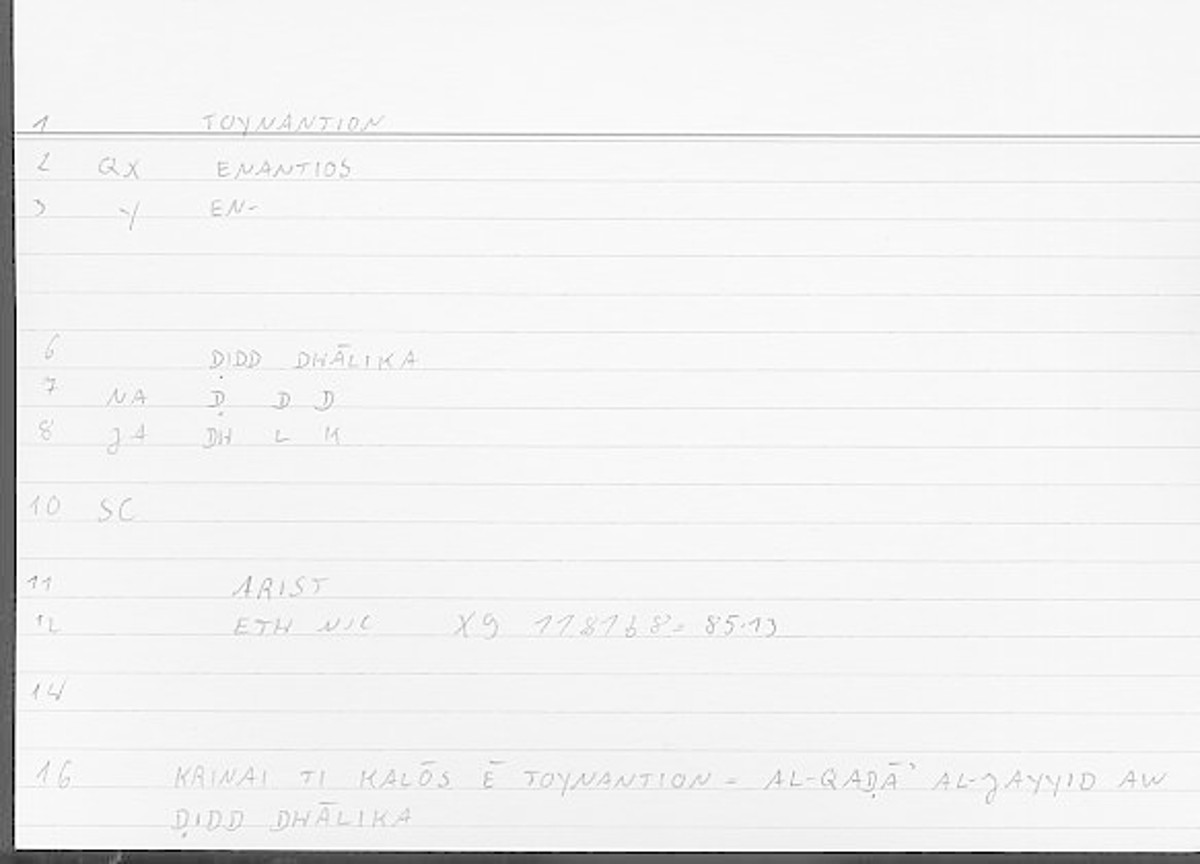 1 TOYNANTION
2 QX ENANTIOS
3 Y EN-
6 ḌIDD DHĀLIKA
7 NA Ḍ D D
8 JA DH L K
10 SC
11 ARIST
12 ETH NIC X9 1181b8= 85.13
14
16 KRINAI TI KALŌS Ē TOYNANTION = AL-QAḌĀʾ AL-JAYYID AW
ḌIDD DHĀLIKA